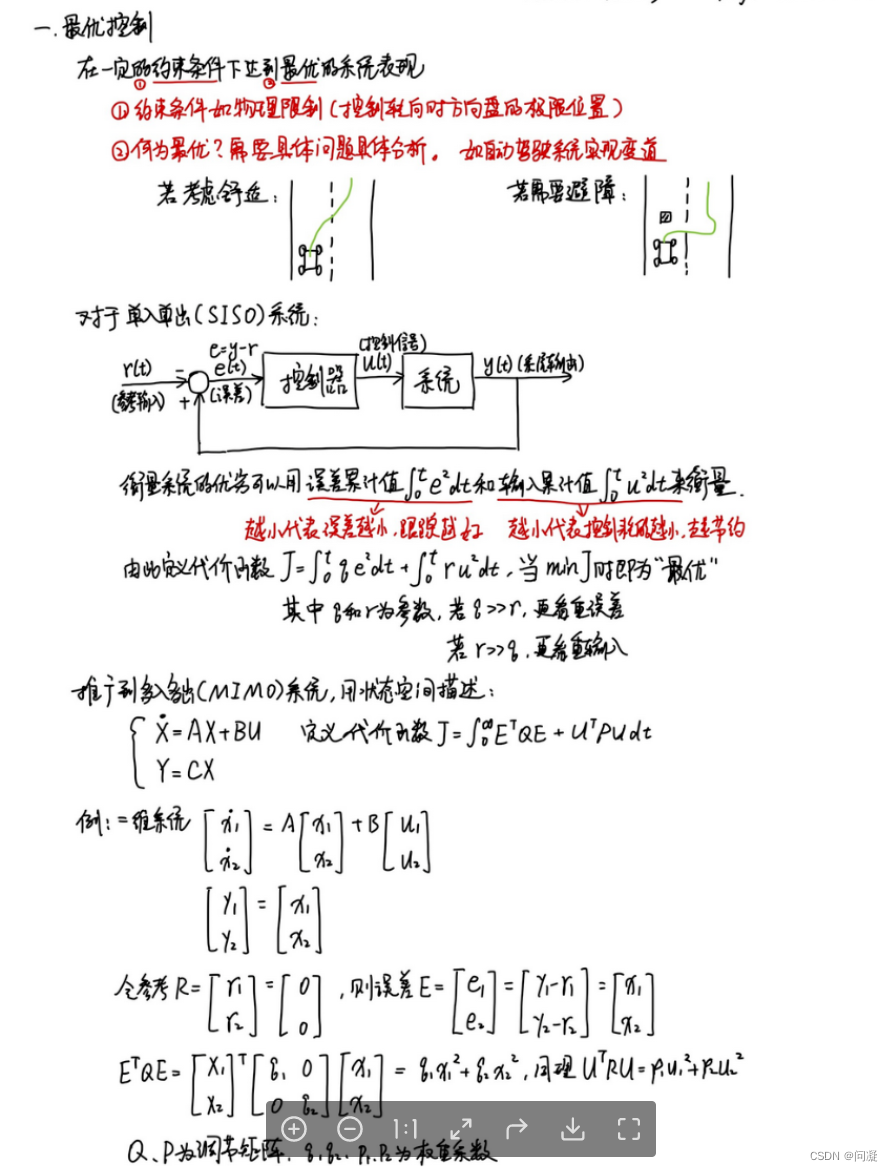 一.最优控制
在一定的约束条件下达到最优的系统表现
① ②
①约束条件如物理限制(控制转向时方向盘的极限位置)
②何为最优?需要具体问题具体分析。如自动驾驶系统实现变道
若考虑舒适: 若需要避障:
对于单入单出(SISO)系统:
e=y-r (控制信号)
r(t) - e(t) 控制器 u(t) 系统 y(t)(系统输出)
(参考输入) + (误差)
衡量系统的优劣可以用误差累计值∫₀ᵗe²dt和输入累计值∫₀ᵗu²dt来衡量.
越小代表误差越小,跟踪越好 越小代表控制耗能越小,越节约
由此定义代价函数 J=∫₀ᵗqe²dt+∫₀ᵗru²dt, 当minJ时即为"最优"
其中q和r为参数, 若q>>r, 更看重误差
若r>>q, 更看重输入
推广到多入多出(MIMO)系统,用状态空间描述:
{ Ẋ=AX+BU 定义代价函数J=∫₀^∞EᵀQE+UᵀPUdt
Y=CX
例:二维系统 [ẋ₁ ẋ₂]=A[x₁ x₂]+B[u₁ u₂]
[y₁ y₂]=[x₁ x₂]
令参考R=[r₁ r₂]=[0 0],则误差E=[e₁ e₂]=[y₁-r₁ y₂-r₂]=[x₁ x₂]
EᵀQE=[x₁ x₂]ᵀ[q₁ 0 0 q₂][x₁ x₂]=q₁x₁²+q₂x₂²,同理UᵀRU=p₁u₁²+p₂u₂²
1:1
Q、P为调节矩阵, q₁q₂、p₁、p₂为权重系数
CSDN @问凝